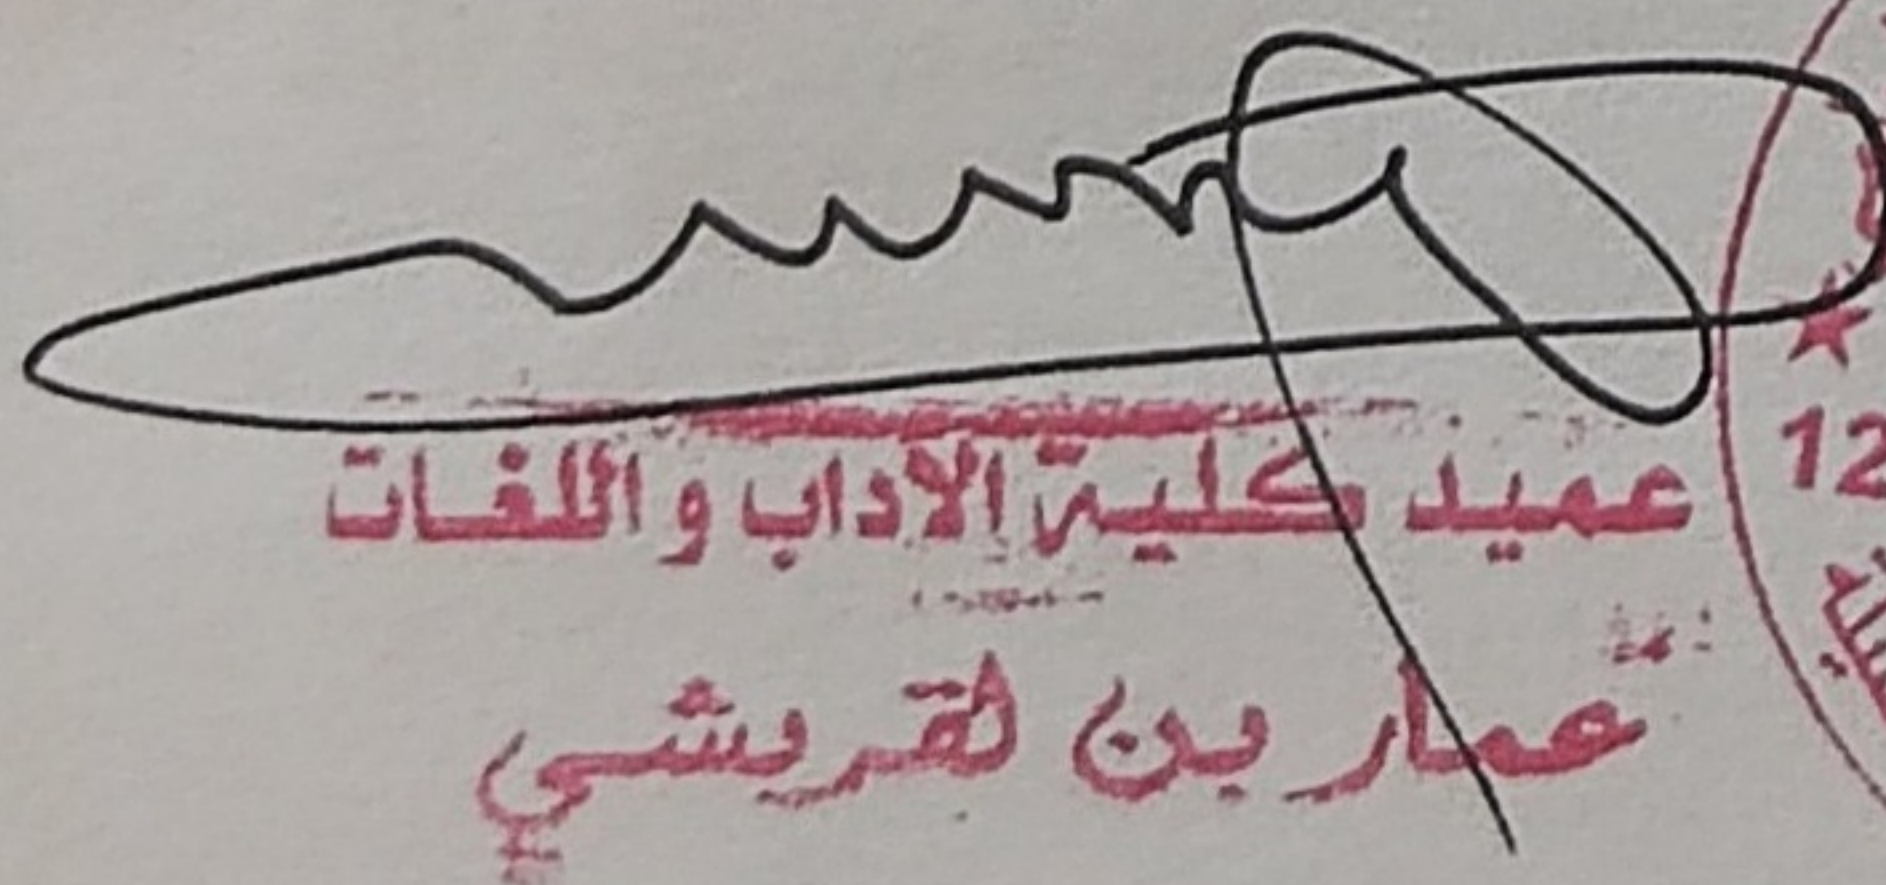 عميد كلية الآداب واللغات
عمار بن لقريشي
12